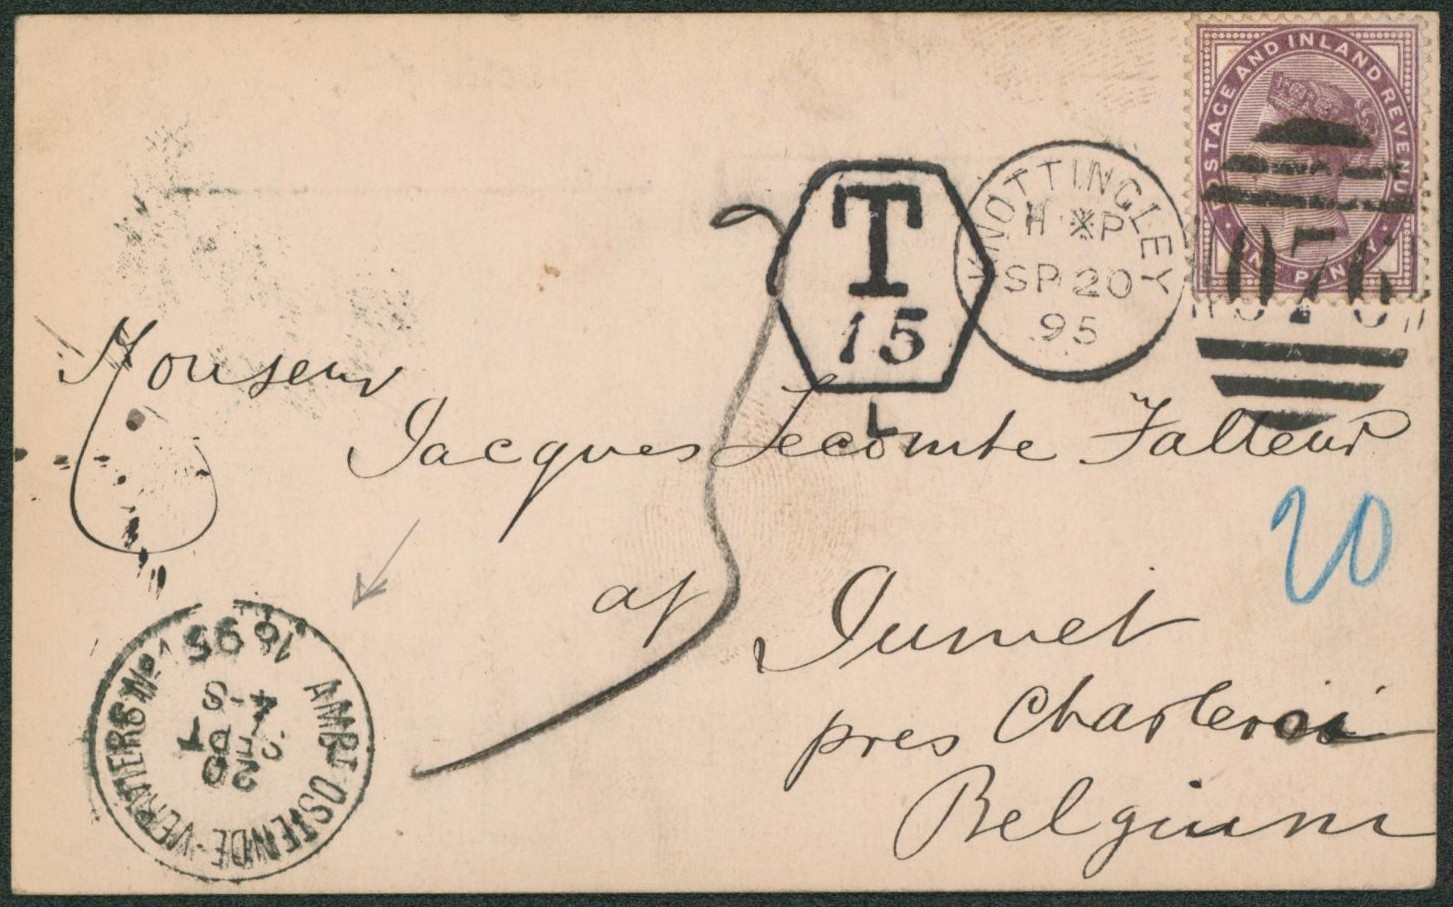 POSTAGE AND INLAND REVENUE
ONE PENNY
976
KNOTTINGLEY
H P
SP 20
95
T
15
L
Monseur
Jacques Lecomte Falleur
20
af
Jumet
pres Charleroi
Belgium
AMBT OSTENDE-VERVIERS No 1
4-S
SEPT
20
1895